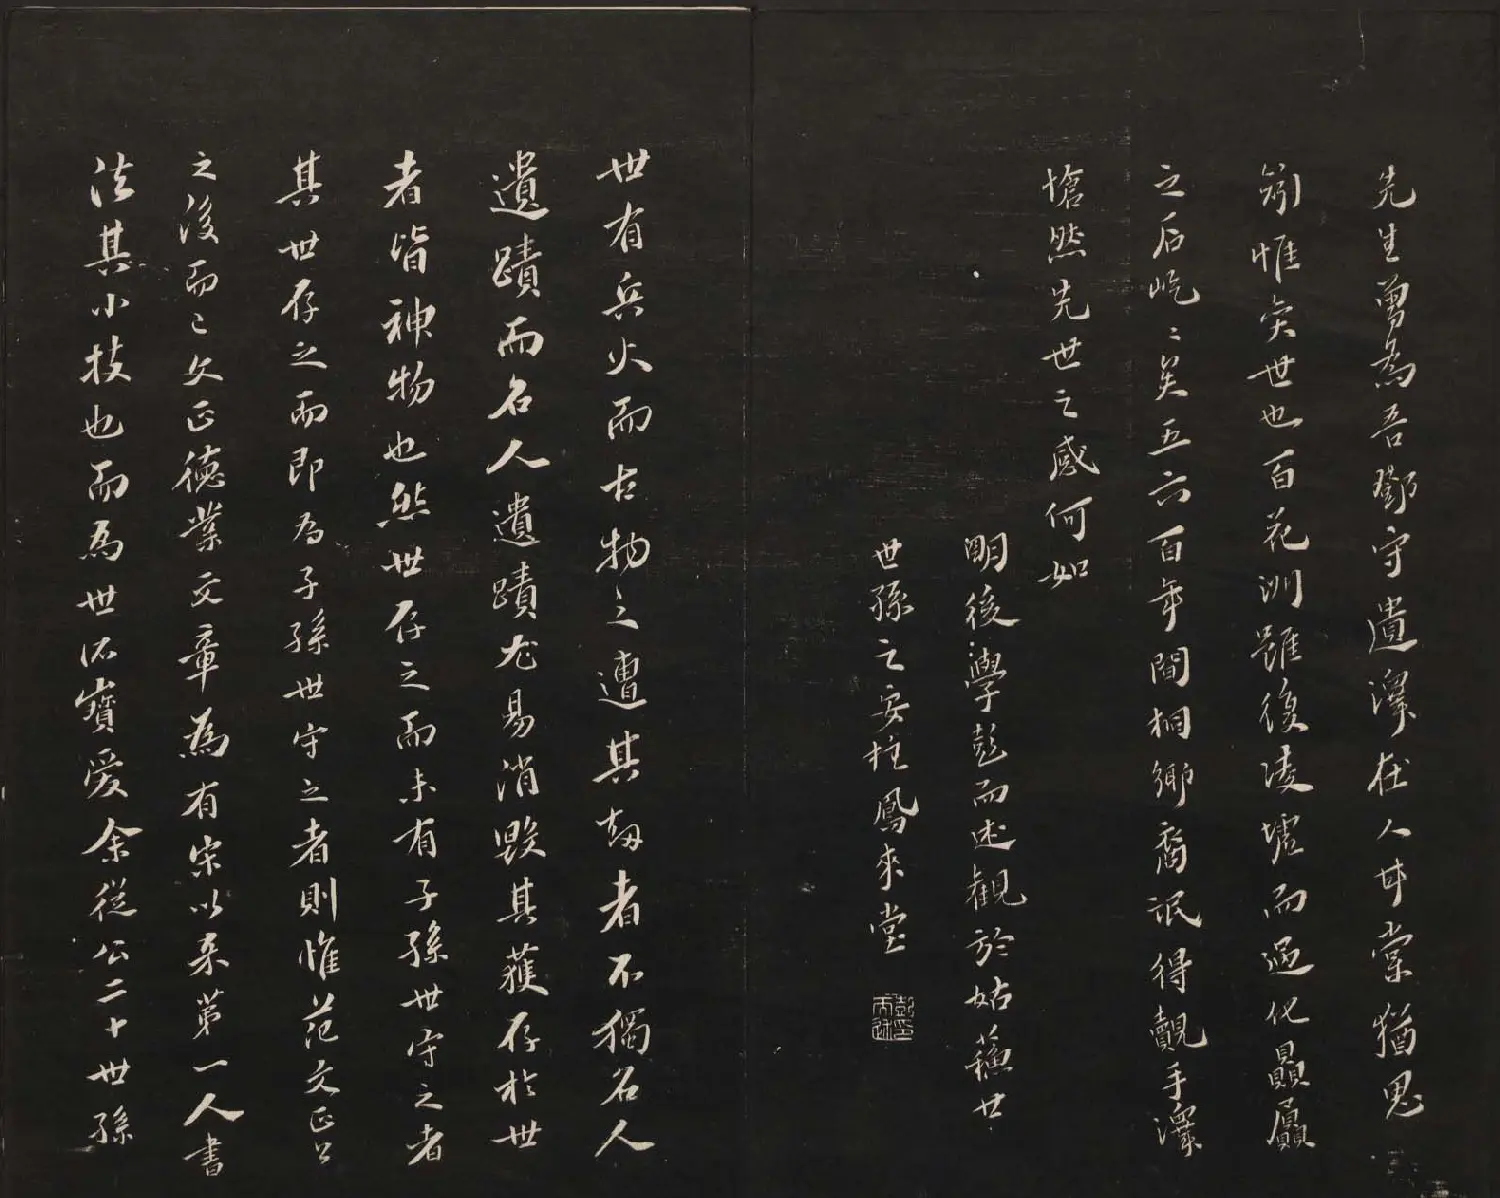 先生曾為吾鄧守遺澤在人甘棠猶思
翦惟矣世也百花洲雖復淩墟而過化贔屭
之后屹〻矣五六百年間桐鄉裔氓得覿手澤
愴然先世之感何如
明後學彭而述觀於姑蘓世
世孫之安柱鳳來堂
世有兵火而古物之遭其劫者不獨名人
遺蹟而名人遺蹟尤易消毀其獲存於世
者皆神物也然世存之而未有子孫世守之者
其世存之而即為子孫世守之者則惟范文正公
之後而已文正德業文章為有宋以來第一人書
法其小技也而為世所寶愛余從公二十世孫